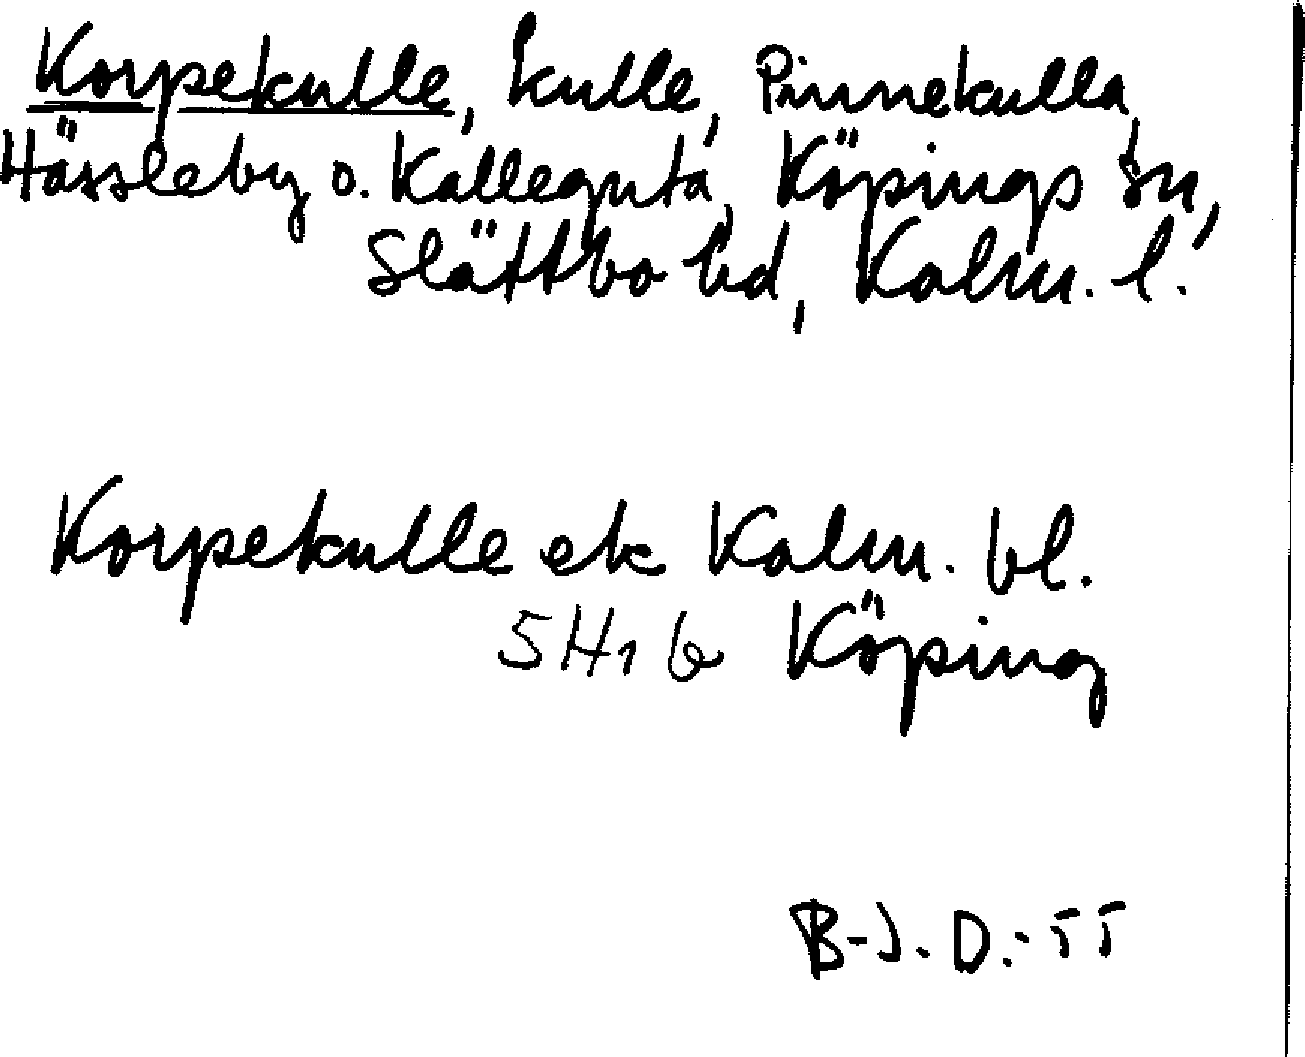 Korpekulle, kulle, Pinnekulla,
Hässleby o. Kalleguta, Köpings sn,
Slättbo hd, Kalm. l.
Korpekulle ek Kalm. bl.
5H1 b Köping
B-J. D.-55